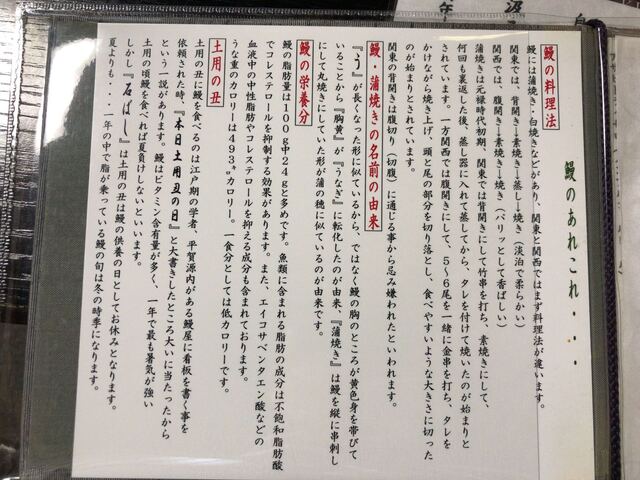 鰻のあれこれ・・・・
鰻の料理法
鰻には蒲焼き・白焼きなどがあり、関東と関西ではまず料理法が違います。
関東では、背開き→素焼き→蒸し→焼き(淡泊で柔らかい)
関西では、腹開き→素焼き→焼き(パリッとして香ばしい)
蒲焼きは元禄時代初期、関東では背開きにして竹串を打ち、素焼きにして、
何回も裏返した後、蒸し器に入れて蒸してから、タレを付けて焼いたのが始まりと
されています。一方関西では腹開きにして、5～6尾を一緒に金串を打ち、タレを
かけながら焼き上げ、頭と尾の部分を切り落とし、食べやすいような大きさに切った
のが始まりとされています。
関東の背開きは腹切り(切腹)に通じる事から忌み嫌われたといわれます。
鰻・蒲焼きの名前の由来
『う』が長くなった形に似ているから、ではなく鰻の胸のところが黄色身を帯びて
いることから『胸黄』が『うなぎ』に転化したのが由来、『蒲焼き』は鰻を縦に串刺し
にして丸焼きにしていた形が蒲の穂に似ているのが由来です。
鰻の栄養分
鰻の脂肪量は100g中24gと多めです。魚類に含まれる脂肪の成分は不飽和脂肪酸
でコレステロールを抑制する効果があります。また、エイコサペンタエン酸などの
血液中の中性脂肪やコレステロールを抑える成分も含まれております。
うな重のカロリーは493㌔カロリー。一食分としては低カロリーです。
土用の丑
土用の丑に鰻を食べるのは江戸期の学者、平賀源内がある鰻屋に看板を書く事を
依頼された時、『本日土用丑の日』と大書きしたところ大いに当たったから
という一説があります。鰻はビタミン含有量が多く、一年で最も暑気が強い
土用の頃鰻を食べれば夏負けしないといいます。
しかし『石ばし』は土用の丑は鰻の供養の日としてお休みとなります。
夏よりも‥‥一年の中で脂が乗っている鰻の旬は冬の時季になります。